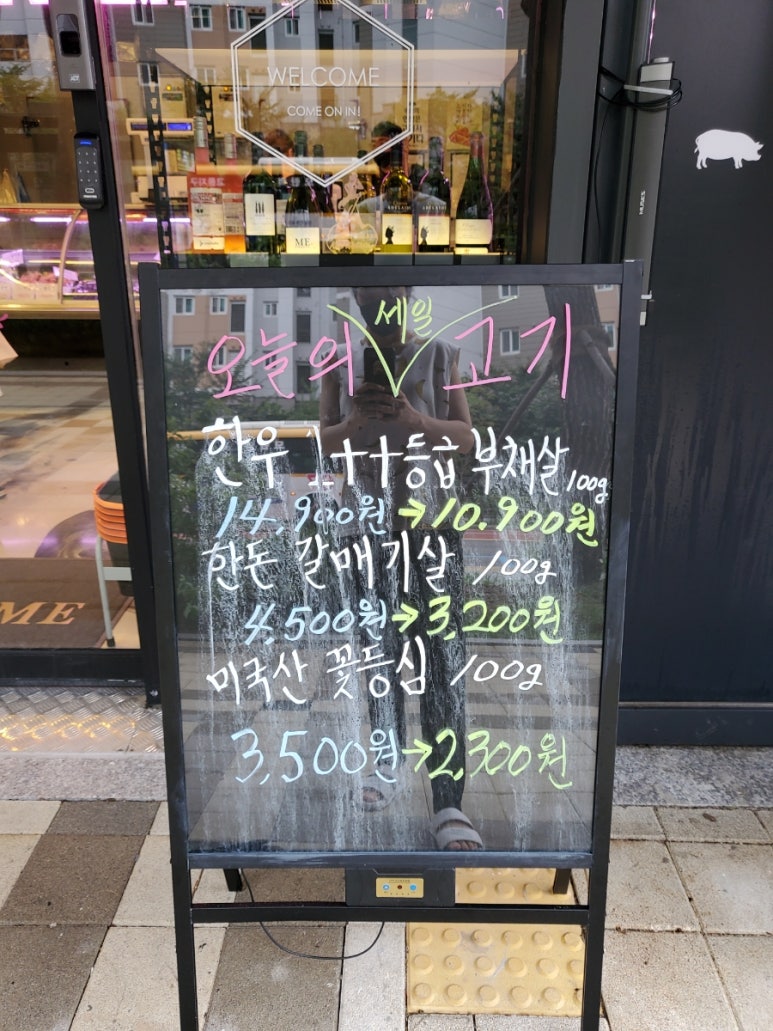 WELCOME
COME ON IN!
ME
ADELAIDE
HUSKS
오늘의 세일 고기
한우 1++등급 부채살 100g
14,900원 → 10.900원
한돈 갈매기살 100g
4,500원 → 3,200원
미국산 꽃등심 100g
3,500원 → 2,300원
ME